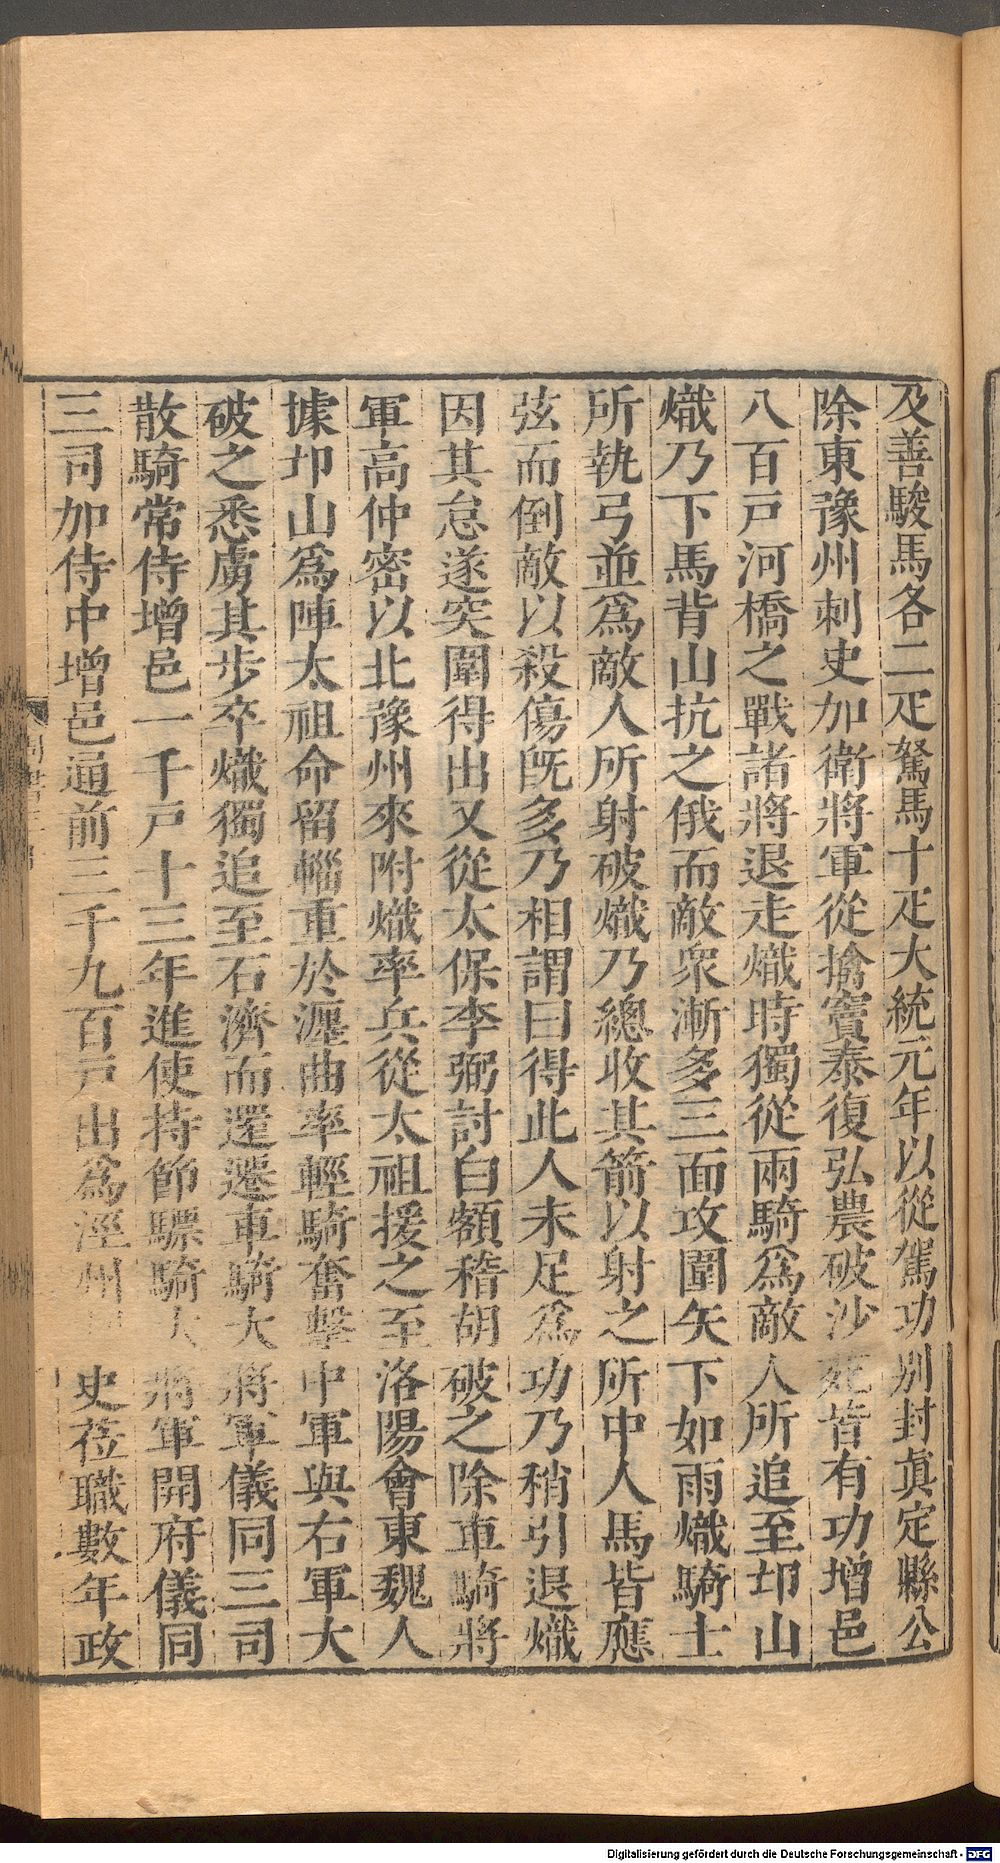 及善駿馬各二疋駑馬十疋大統元年以從駕功別封眞定縣公
除東豫州刺史加衛將軍從擒竇泰復弘農破沙苑皆有功增邑
八百戸河橋之戰諸將退走熾時獨從兩騎爲敵人所追至邙山
熾乃下馬背山抗之俄而敵衆漸多三面攻圍矢下如雨熾騎士
所執弓並爲敵人所射破熾乃總收其箭以射之所中人馬皆應
弦而倒敵以殺傷旣多乃相謂曰得此人未足爲功乃稍引退熾
因其怠遂突圍得出又從太保李弼討白額稽胡破之除車騎將
軍高仲密以北豫州來附熾率兵從太祖援之至洛陽會東魏人
據邙山爲陣太祖命留輜重於瀍曲率輕騎奮擊中軍與右軍大
破之悉虜其步卒熾獨追至石濟而還遷車騎大將軍儀同三司
散騎常侍增邑一千戸十三年進使持節驃騎大將軍開府儀同
三司加侍中增邑通前三千九百戸出爲涇州史莅職數年政
Digitalisierung gefördert durch die Deutsche Forschungsgemeinschaft - DFG